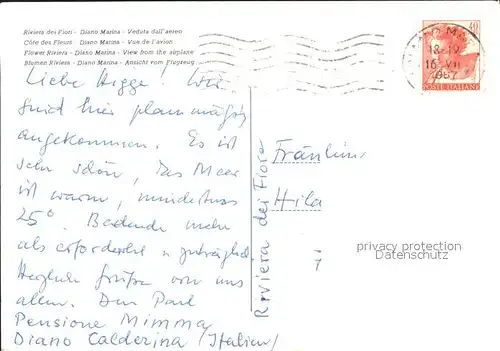 Riviera dei Fiori - Diano Marina - Veduta dall'aereo
Côte des Fleurs - Diano Marina - Vue de l'avion
Flower Riviera - Diano Marina - View from the airplane
Blumen Riviera - Diano Marina - Ansicht vom Flugzeug
40
18-19
16 VII
1967
POSTE ITALIANE
Liebe Wir
sind hier planmäßig
angekommen. Es ist
sehr schön, das Meer
ist warm, mindestens
25°. Badende mehr
als erforderlich u. zuträglich
Herzliche Grüße von uns
allen. Paul
Pensione Mimma
Diano Calderina (Italien)
Riviera dei Fiori
Fräulein
Hila
privacy protection
Datenschutz